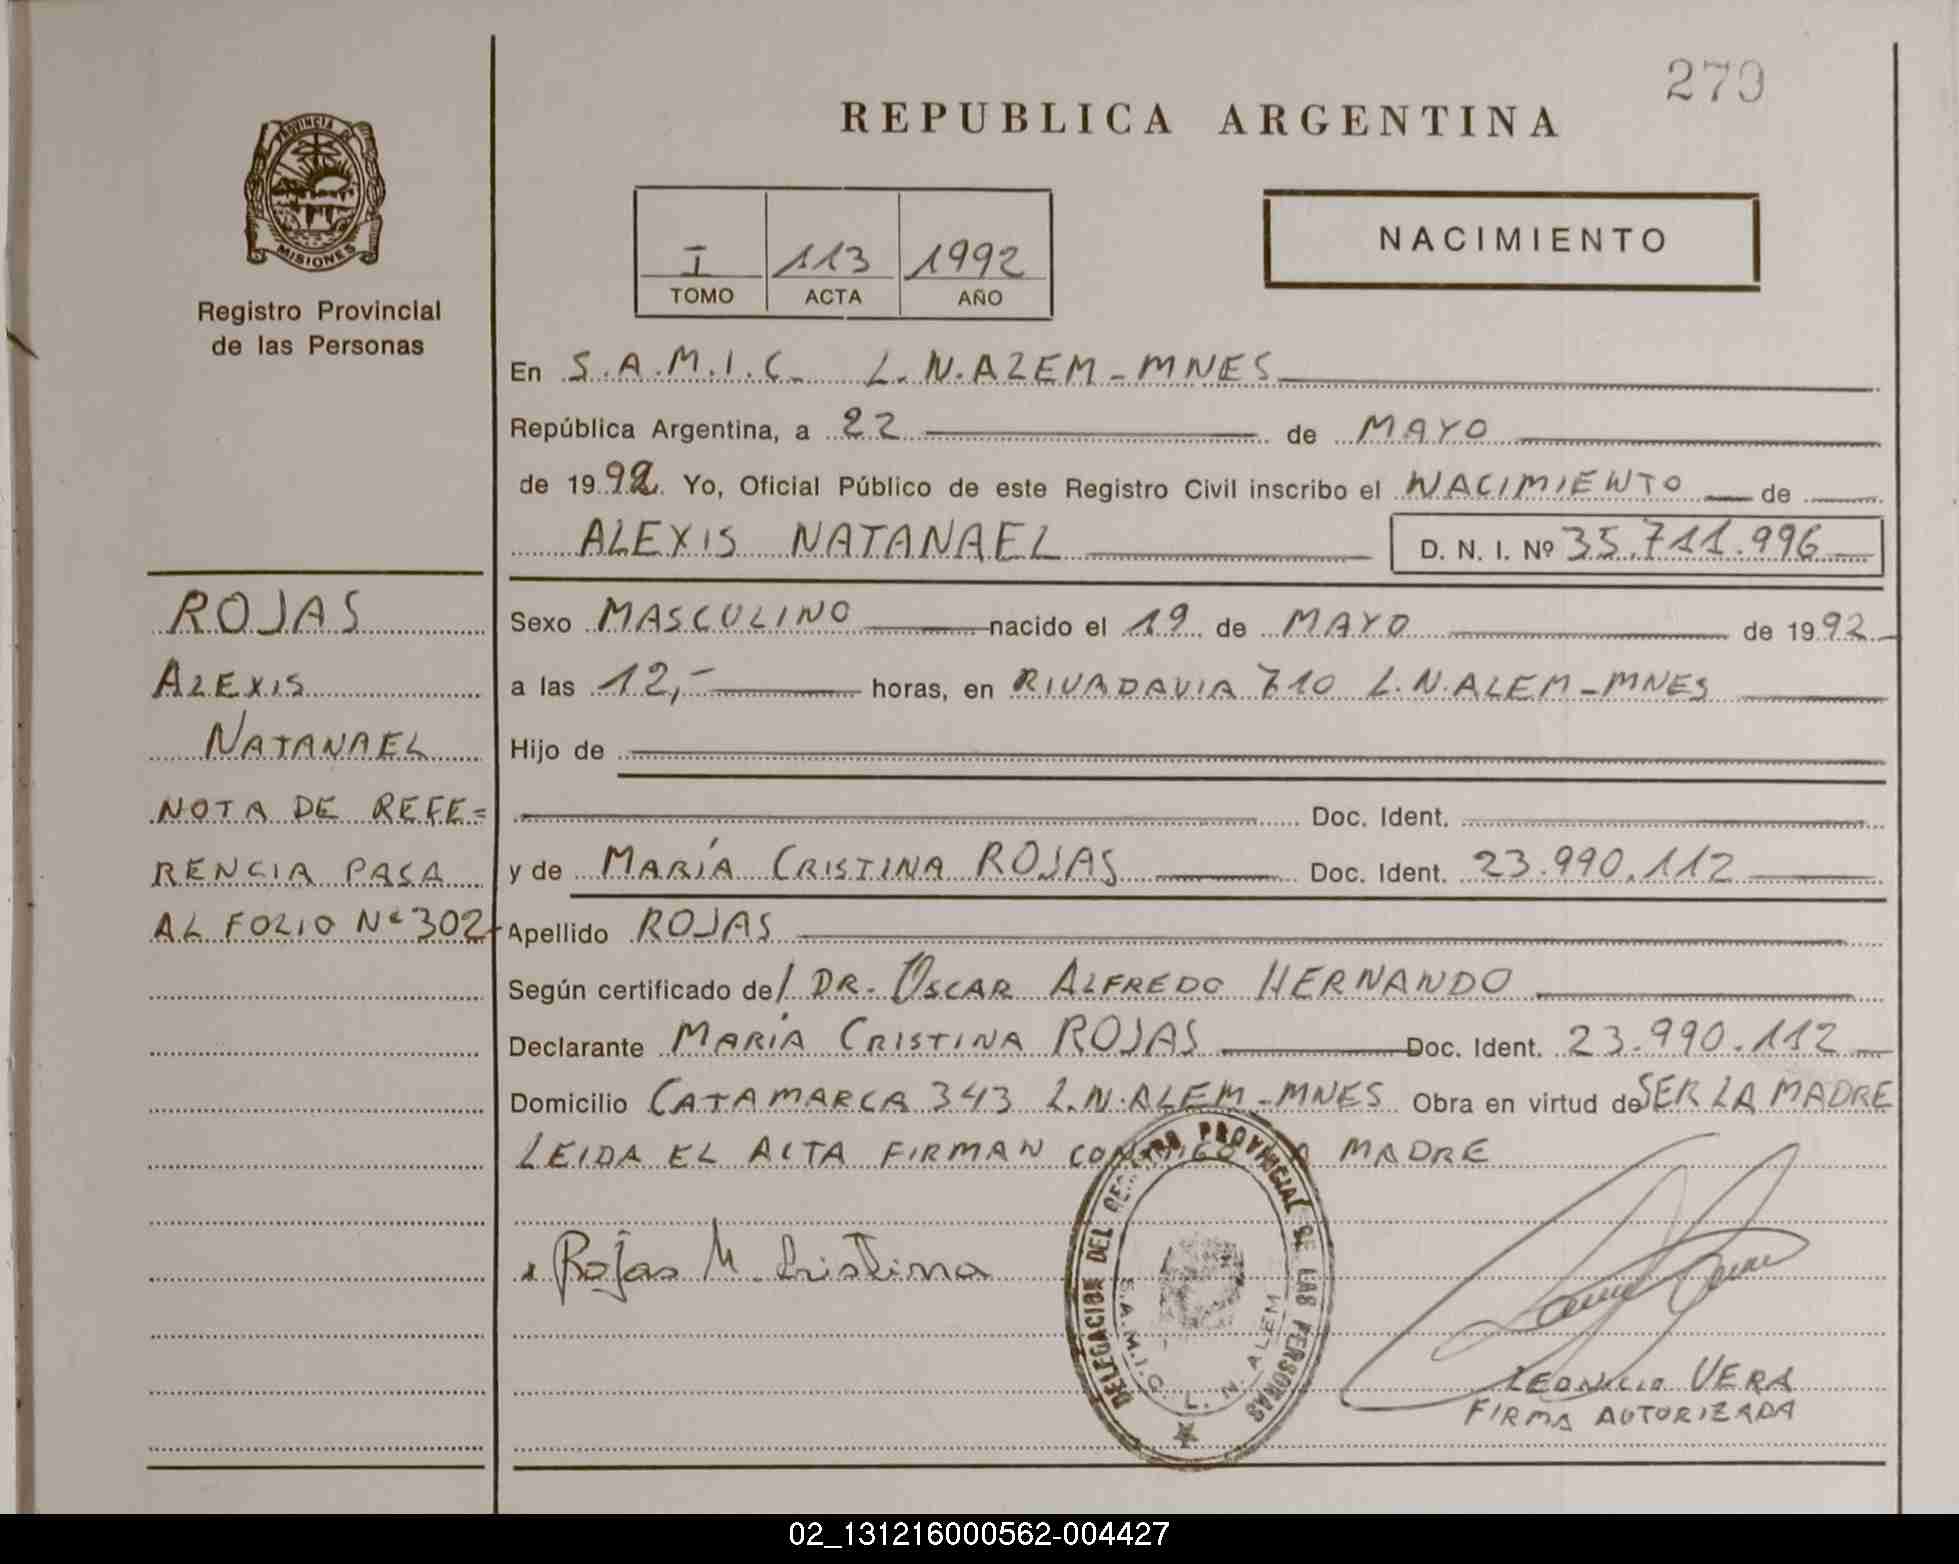 279
REPUBLICA ARGENTINA
PROVINCIA DE
MISIONES
Registro Provincial
de las Personas
NACIMIENTO
I 113 1992
TOMO ACTA AÑO
En S.A.M.I.C. L.N.ALEM-MNES
República Argentina, a 22 de MAYO
de 1992. Yo, Oficial Público de este Registro Civil inscribo el NACIMIENTO de
ALEXIS NATANAEL D. N. I. Nº 35.711.996
ROJAS
ALEXIS
NATANAEL
NOTA DE REFE=
RENCIA PASA
AL FOLIO Nº 302
Sexo MASCULINO nacido el 19 de MAYO de 1992
a las 12,- horas, en RIVADAVIA 710 L.N.ALEM-MNES
Hijo de
Doc. Ident.
y de MARÍA CRISTINA ROJAS Doc. Ident. 23.990.112
Apellido ROJAS
Según certificado del DR. OSCAR ALFREDO HERNANDO
Declarante MARÍA CRISTINA ROJAS Doc. Ident. 23.990.112
Domicilio CATAMARCA 343 L.N.ALEM-MNES Obra en virtud de SER LA MADRE
LEIDA EL ACTA FIRMAN CONMIGO LA MADRE
Rojas M. Cristina
DELEGACION DEL REGISTRO PROVINCIAL DE LAS PERSONAS
S.A.M.I.C. L. N. ALEM
LEONICIO VERA
FIRMA AUTORIZADA
02_131216000562-004427